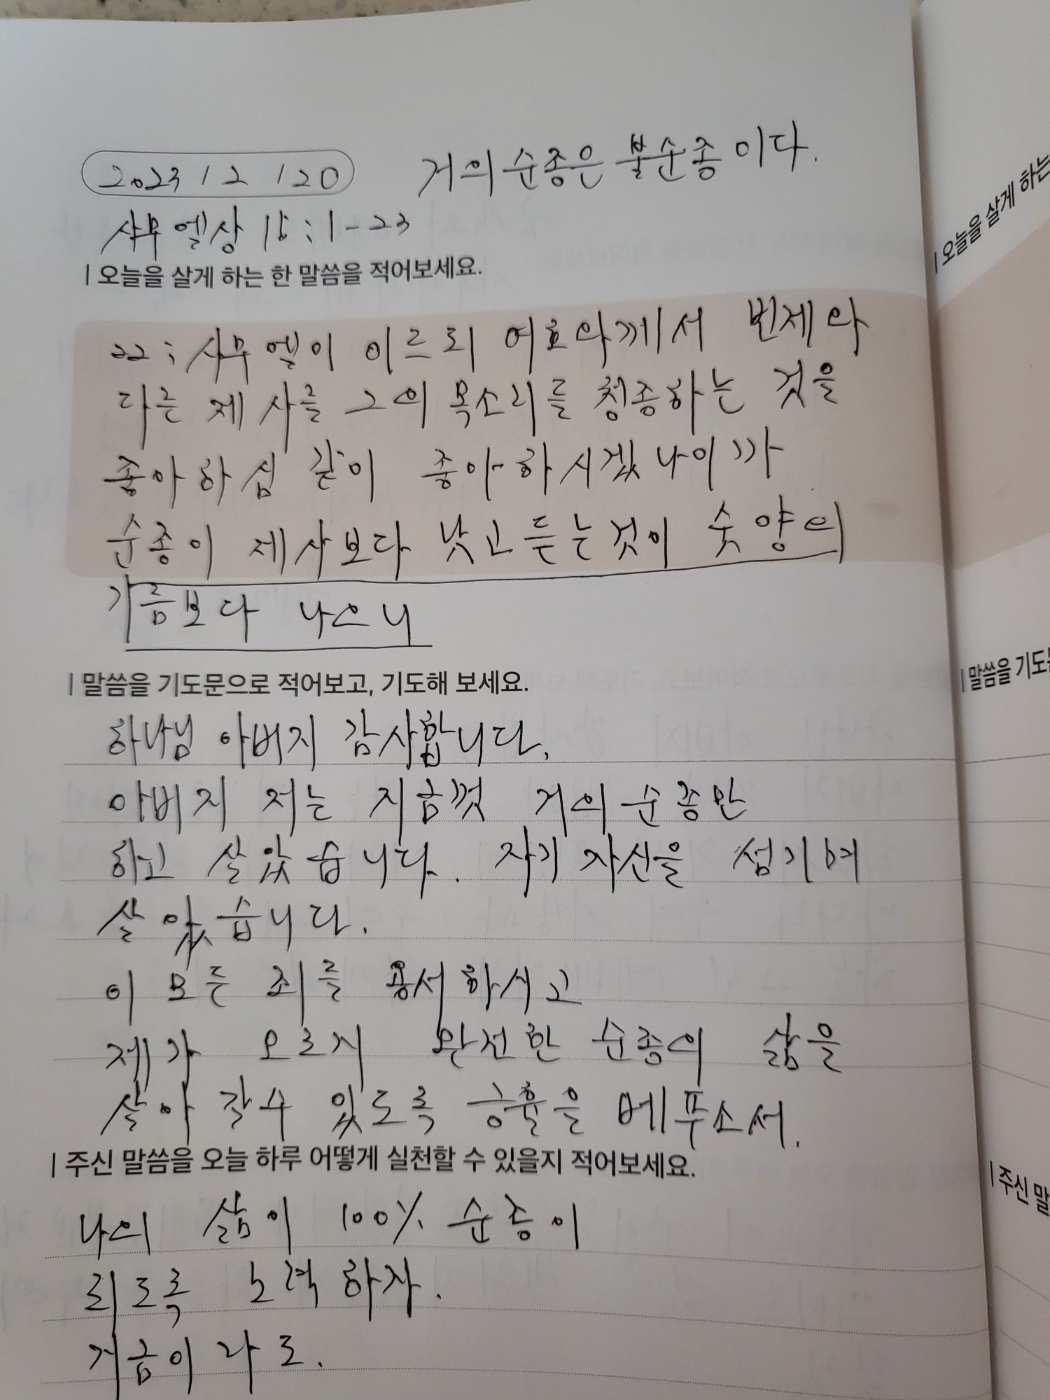 2023 12 20 거의 순종은 불순종이다.
사무엘상 15:1-23
| 오늘을 살게 하는 한 말씀을 적어보세요.
22; 사무엘이 이르되 여호와께서 번제와
다른 제사를 그의 목소리를 청종하는 것을
좋아하심 같이 좋아하시겠나이까
순종이 제사보다 낫고 듣는것이 숫양의
기름보다 나으니
| 말씀을 기도문으로 적어보고, 기도해 보세요.
하나님 아버지 감사합니다.
아버지 저는 지금껏 거의 순종만
하고 살았습니다. 자기 자신을 섬기며
살았습니다.
이 모든 죄를 용서하시고
제가 오로지 완전한 순종의 삶을
살아 갈수 있도록 긍휼을 베푸소서.
| 주신 말씀을 오늘 하루 어떻게 실천할 수 있을지 적어보세요.
나의 삶이 100% 순종이
되도록 노력하자.
지금이라도.
| 오늘을 살게 하는
| 말씀을 기도
| 주신 말